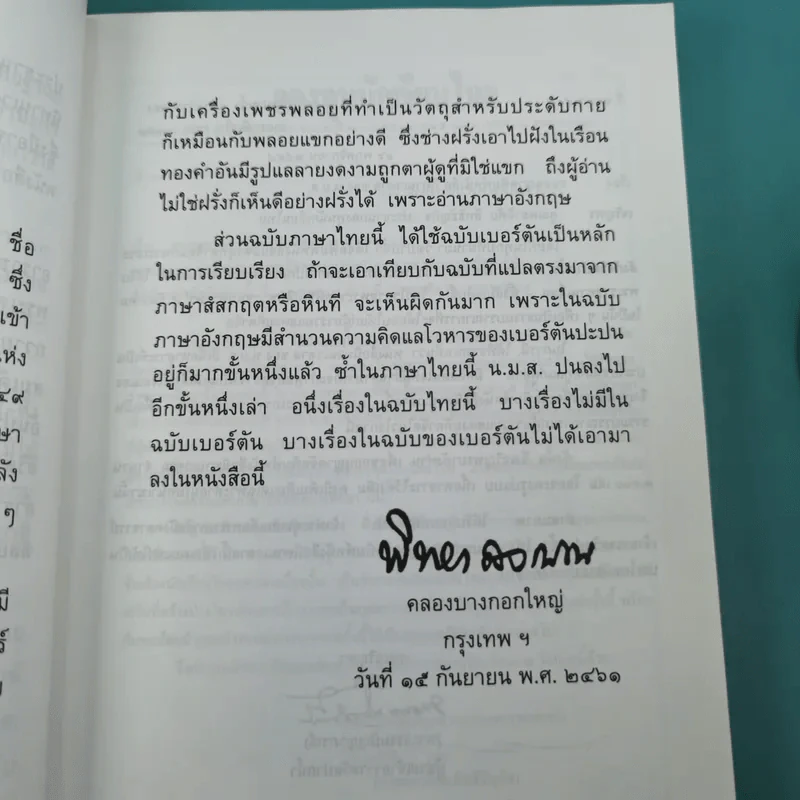 กับเครื่องเพชรพลอยที่ทำเป็นวัตถุสำหรับประดับกาย
ก็เหมือนกับพลอยแขกอย่างดี ซึ่งช่างฝรั่งเอาไปฝังในเรือน
ทองคำอันมีรูปแลลายงดงามถูกตาผู้ดูที่มิใช่แขก ถึงผู้อ่าน
ไม่ใช่ฝรั่งก็เห็นดีอย่างฝรั่งได้ เพราะอ่านภาษาอังกฤษ
ส่วนฉบับภาษาไทยนี้ ได้ใช้ฉบับเบอร์ตันเป็นหลัก
ในการเรียบเรียง ถ้าจะเอาเทียบกับฉบับที่แปลตรงมาจาก
ภาษาสํสกฤตหรือหินที จะเห็นผิดกันมาก เพราะในฉบับ
ภาษาอังกฤษมีสำนวนความคิดแลโวหารของเบอร์ตันปะปน
อยู่ก็มากขั้นหนึ่งแล้ว ซ้ำในภาษาไทยนี้ น.ม.ส. ปนลงไป
อีกขั้นหนึ่งเล่า อนึ่งเรื่องในฉบับไทยนี้ บางเรื่องไม่มีใน
ฉบับเบอร์ตัน บางเรื่องในฉบับของเบอร์ตันไม่ได้เอามา
ลงในหนังสือนี้
พิทยาลงกรณ
คลองบางกอกใหญ่
กรุงเทพ ฯ
วันที่ ๑๕ กันยายน พ.ศ. ๒๔๖๑
ชื่อ
ซึ่ง
เข้า
ห่ง
๔๙
ษา
ลัง
ๆ
มี
ร์